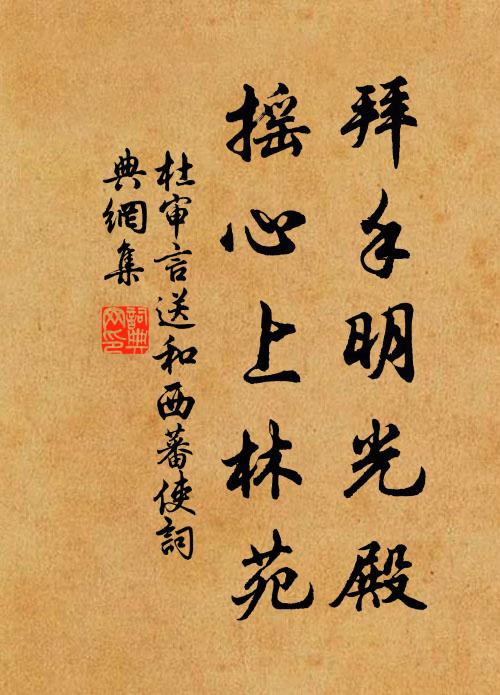 拜手明光殿
摇心上林苑
杜审言送和西蕃使詞
典網集
詞典网印